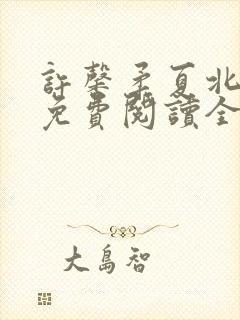 許馨矛夏北
免費閱讀全
大島智